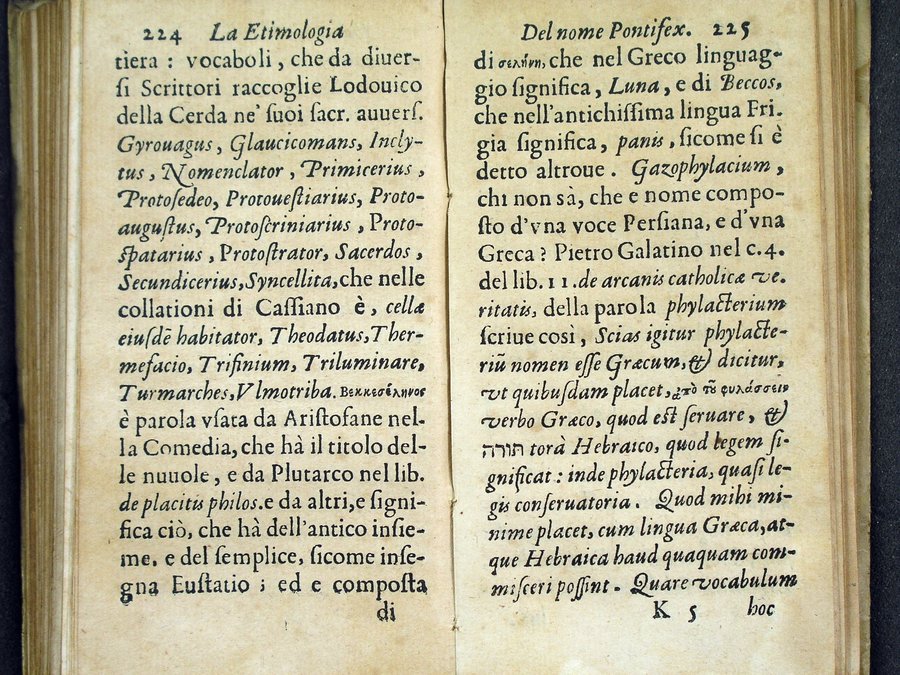 224 La Etimologia
tiera : vocaboli , che da diuer-
ſi Scrittori raccoglie Lodouico
della Cerda ne' ſuoi ſacr. auuerſ.
Gyrouagus , Glaucicomans, Incly-
tus , Nomenclator , Primicerius ,
Protoſedeo, Protoueſtiarius, Proto-
auguſtus, Protoſcriniarius , Proto-
ſpatarius , Protoſtrator, Sacerdos ,
Secundicerius, Syncellita, che nelle
collationi di Caſſiano è , cellæ
eiuſdē habitator, Theodatus, Ther-
mefacio, Trifinium, Triluminare,
Turmarches, Vlmotriba. Βεκκεσέληνος
è parola vſata da Ariſtofane nel-
la Comedia, che hà il titolo del-
le nuuole , e da Plutarco nel lib.
de placitis philos. e da altri, e ſigni-
fica ciò, che hà dell'antico inſie-
me, e del ſemplice, ſicome inſe-
gna Euſtatio ; ed e compoſta
di
Del nome Pontifex. 225
di σελήνη, che nel Greco linguag-
gio ſignifica, Luna, e di Beccos,
che nell'antichiſſima lingua Fri-
gia ſignifica, panis , ſicome ſi è
detto altroue . Gazophylacium ,
chi non sà, che e nome compo-
ſto d'vna voce Perſiana, e d'vna
Greca ? Pietro Galatino nel c. 4.
del lib. 11. de arcanis catholicæ ve-
ritatis, della parola phylacterium
ſcriue così , Scias igitur phylacte-
riū nomen eſſe Græcum, & dicitur,
vt quibuſdam placet, ἀπὸ τοῦ φυλάσσειν
verbo Græco, quod eſt ſeruare, &
תורה torà Hebraico, quod legem ſi-
gnificat : inde phylacteria, quaſi le-
gis conſeruatoria . Quod mihi mi-
nime placet, cum lingua Græca, at-
que Hebraica haud quaquam com-
miſceri poſſint . Quare vocabulum
K 5 hoc